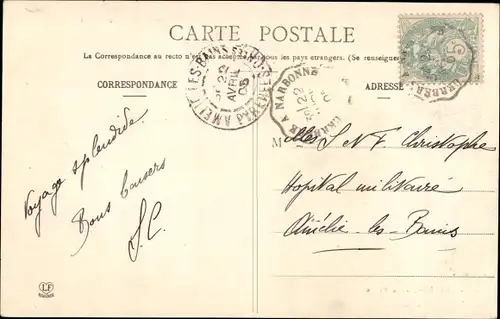 CARTE POSTALE
La Correspondance au recto n'est pas acceptée par tous les pays étrangers. (Se renseigner
CORRESPONDANCE
ADRESSE
AMÉLIE-LES-BAINS
22
AVRIL
05
A NARBONNE
22
05
Melles S N F Christophe
Hopital militaire
Amélie-les-Bains
Voyage splendide.
Bons baisers
S.C.
LF